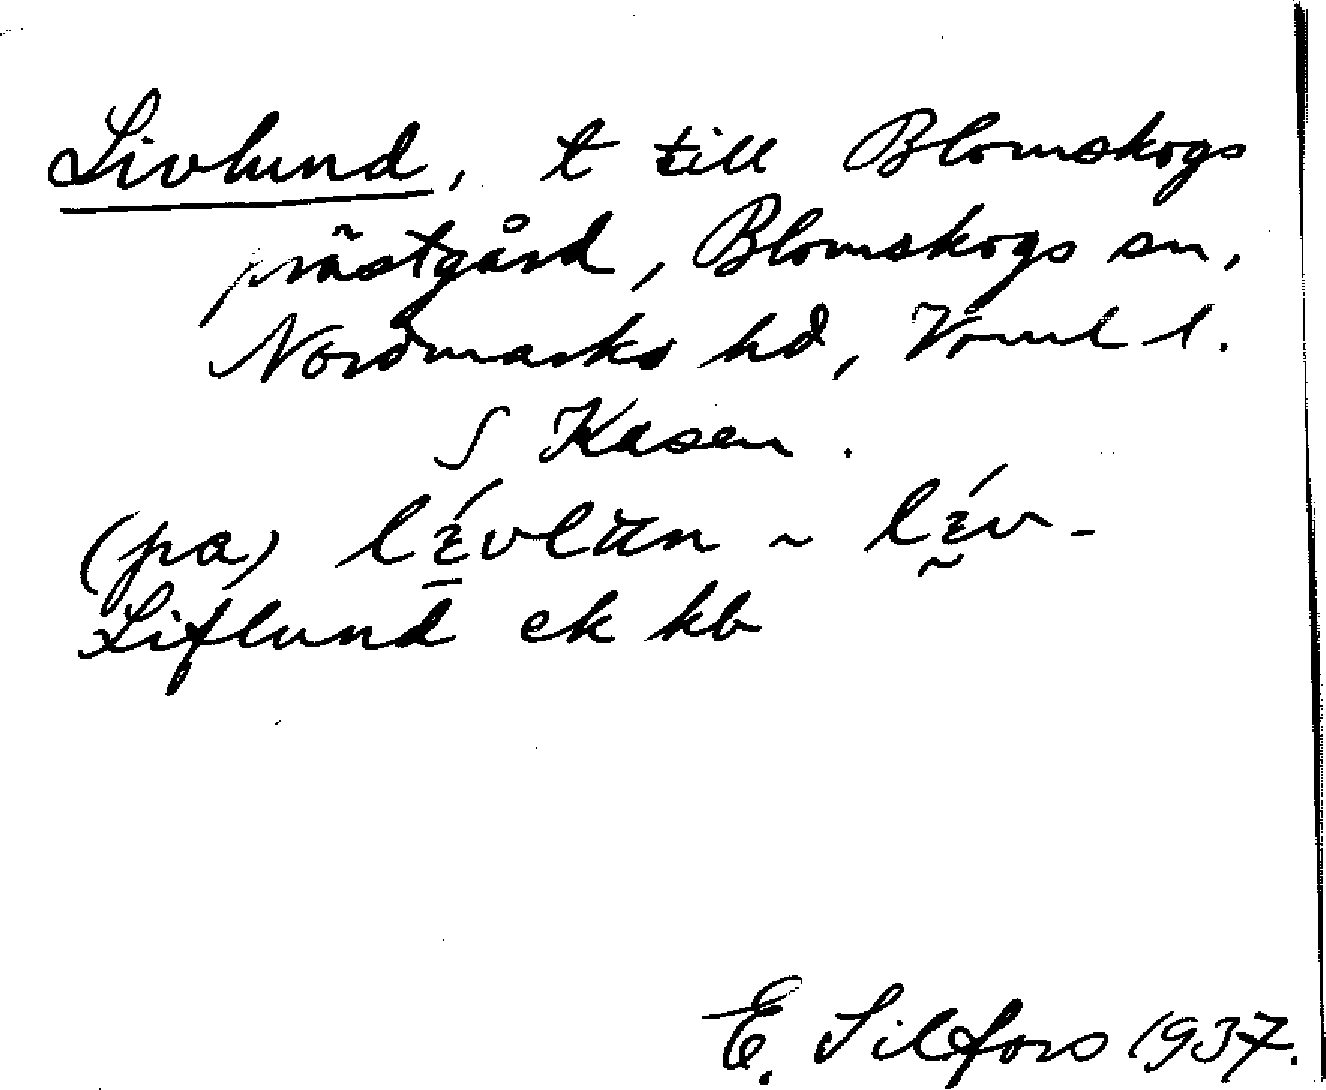 Livlund, t till Blomskogs
prästgård, Blomskogs sn,
Nordmarks hd, Vrml l.
S Kasen.
(pa) lɛ́vlun ~ lɛ́v-
Liflund ek kb
E. Silfors 1937.